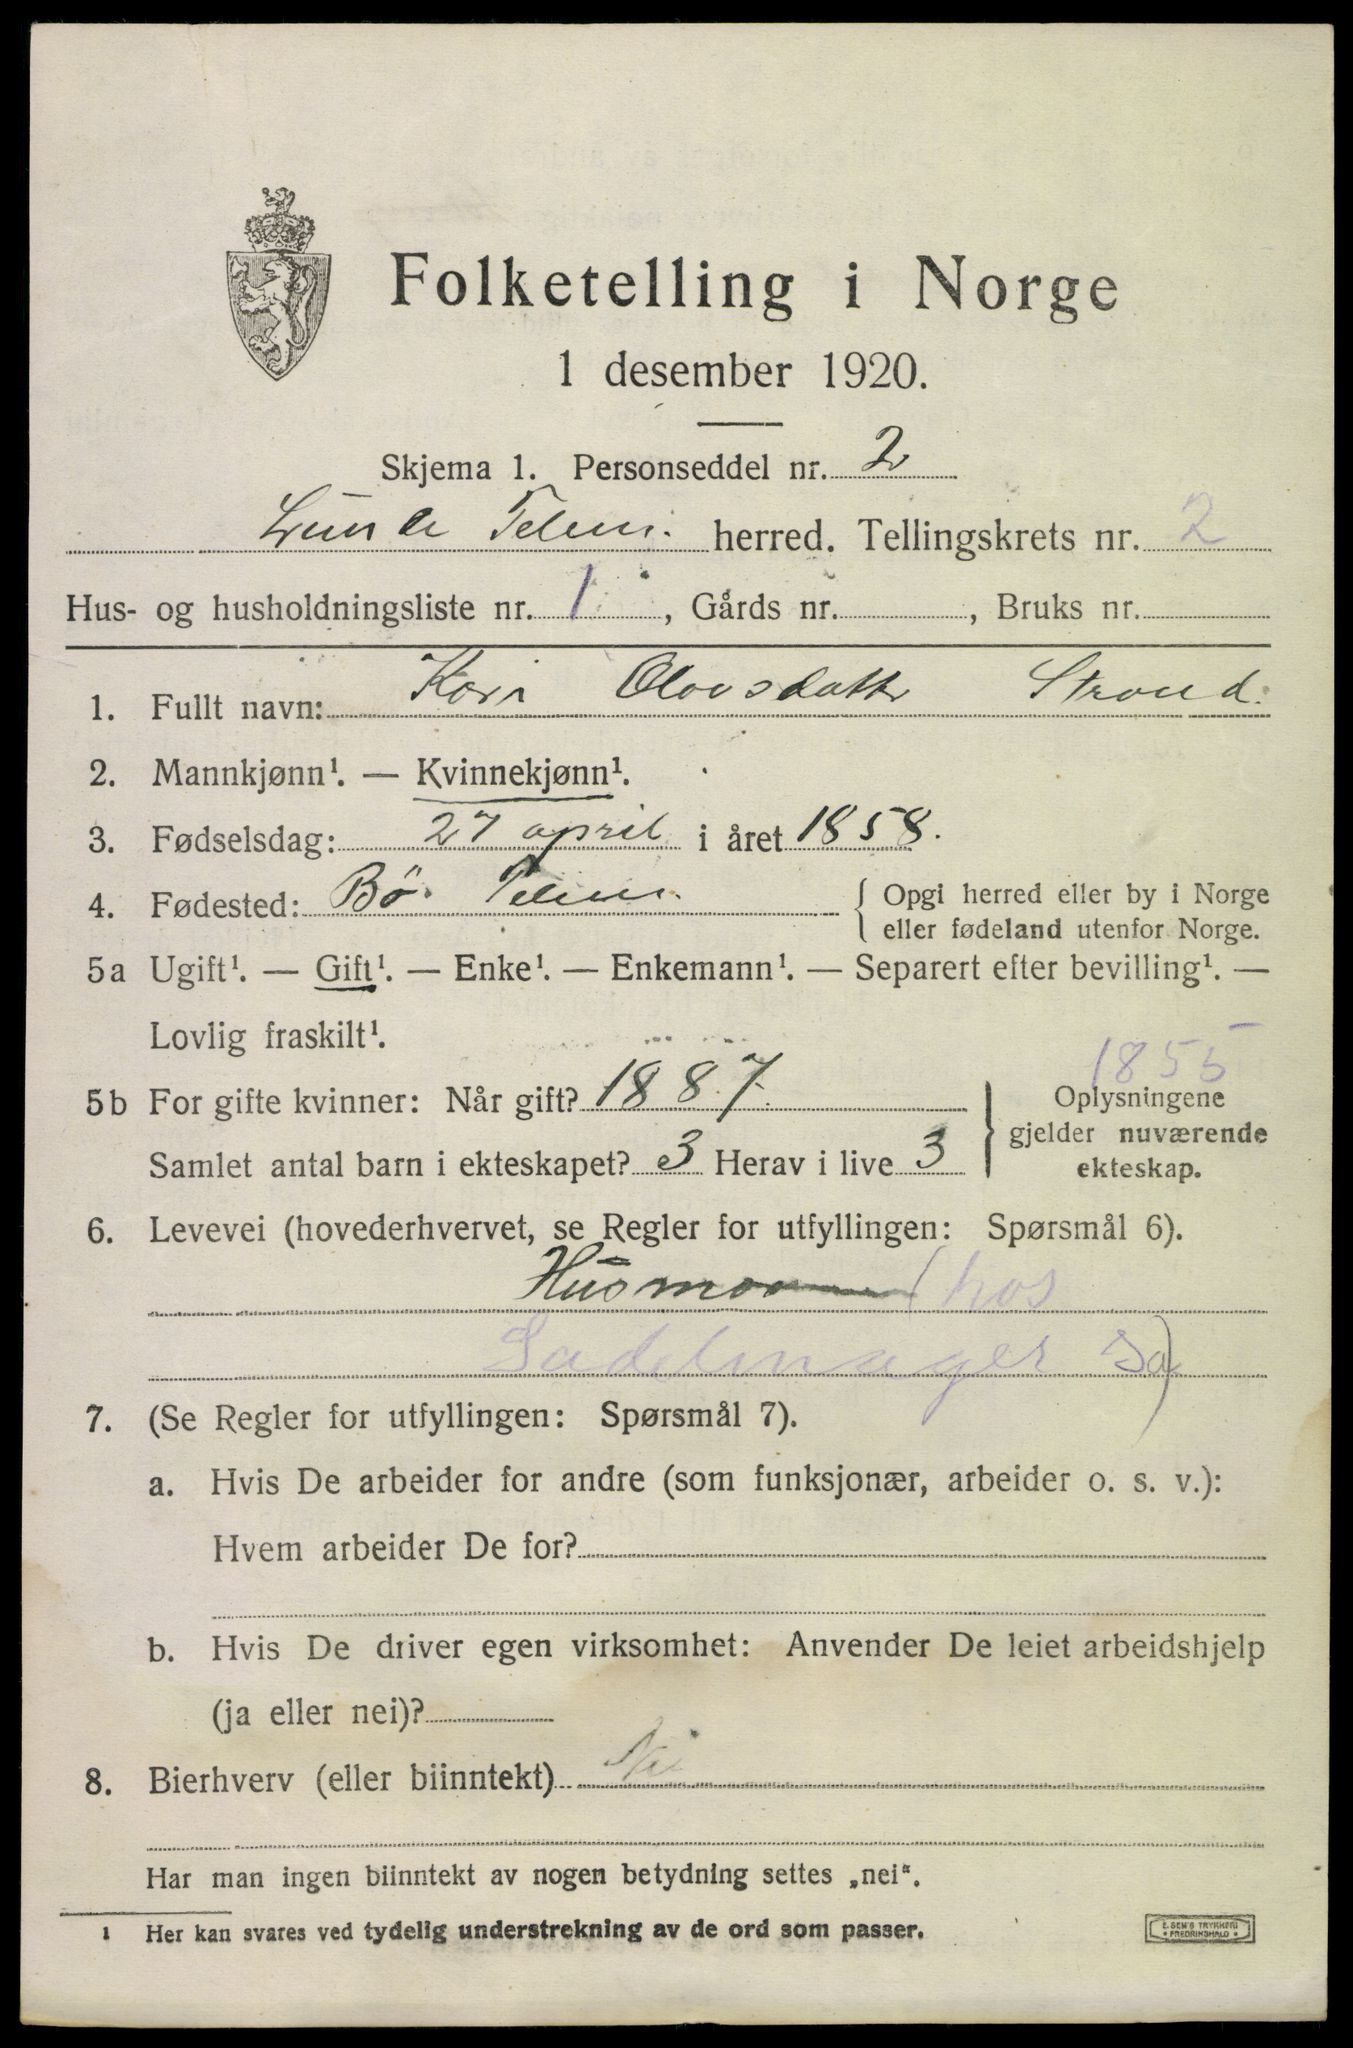 Folketelling i Norge
1 desember 1920.
Skjema 1. Personseddel nr. 2
Lunde Telem. herred. Tellingskrets nr. 2
Hus- og husholdningsliste nr. 1, Gårds nr. , Bruks nr.
1. Fullt navn: Kari Olavsdatter Strand.
2. Mannkjønn¹. — Kvinnekjønn¹.
3. Fødselsdag: 27 april i året 1858.
4. Fødested: Bø Telem. { Opgi herred eller by i Norge
eller fødeland utenfor Norge.
5a Ugift¹. — Gift¹. — Enke¹. — Enkemann¹. — Separert efter bevilling¹. —
Lovlig fraskilt¹.
1855
5b For gifte kvinner: Når gift? 1887. } Oplysningene
gjelder nuværende
ekteskap.
Samlet antal barn i ekteskapet? 3 Herav i live 3
6. Levevei (hovederhvervet, se Regler for utfyllingen: Spørsmål 6).
Husmor (hos
Sadelmager )
7. (Se Regler for utfyllingen: Spørsmål 7).
a. Hvis De arbeider for andre (som funksjonær, arbeider o. s. v.):
Hvem arbeider De for?
b. Hvis De driver egen virksomhet: Anvender De leiet arbeidshjelp
(ja eller nei)?
8. Bierhverv (eller biinntekt) Nei
Har man ingen biinntekt av nogen betydning settes „nei“.
1 Her kan svares ved tydelig understrekning av de ord som passer.
E. SEM'S TRYKKERI
* FREDRIKSHALD *